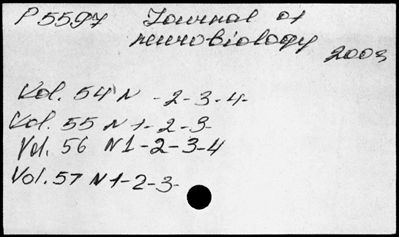 P5597 Journal of
neurobiology 2003
Vol. 54 N -2-3-4-
Vol. 55 N 1-2-3-
Vol. 56 N1-2-3-4
Vol. 57 N1-2-3-